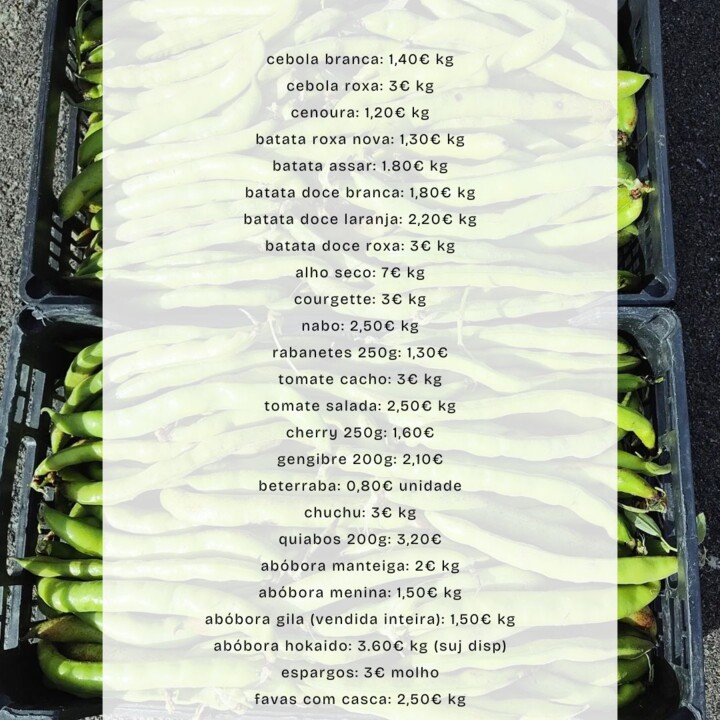 cebola branca: 1,40€ kg
cebola roxa: 3€ kg
cenoura: 1,20€ kg
batata roxa nova: 1,30€ kg
batata assar: 1.80€ kg
batata doce branca: 1,80€ kg
batata doce laranja: 2,20€ kg
batata doce roxa: 3€ kg
alho seco: 7€ kg
courgette: 3€ kg
nabo: 2,50€ kg
rabanetes 250g: 1,30€
tomate cacho: 3€ kg
tomate salada: 2,50€ kg
cherry 250g: 1,60€
gengibre 200g: 2,10€
beterraba: 0,80€ unidade
chuchu: 3€ kg
quiabos 200g: 3,20€
abóbora manteiga: 2€ kg
abóbora menina: 1,50€ kg
abóbora gila (vendida inteira): 1,50€ kg
abóbora hokaido: 3.60€ kg (suj disp)
espargos: 3€ molho
favas com casca: 2,50€ kg